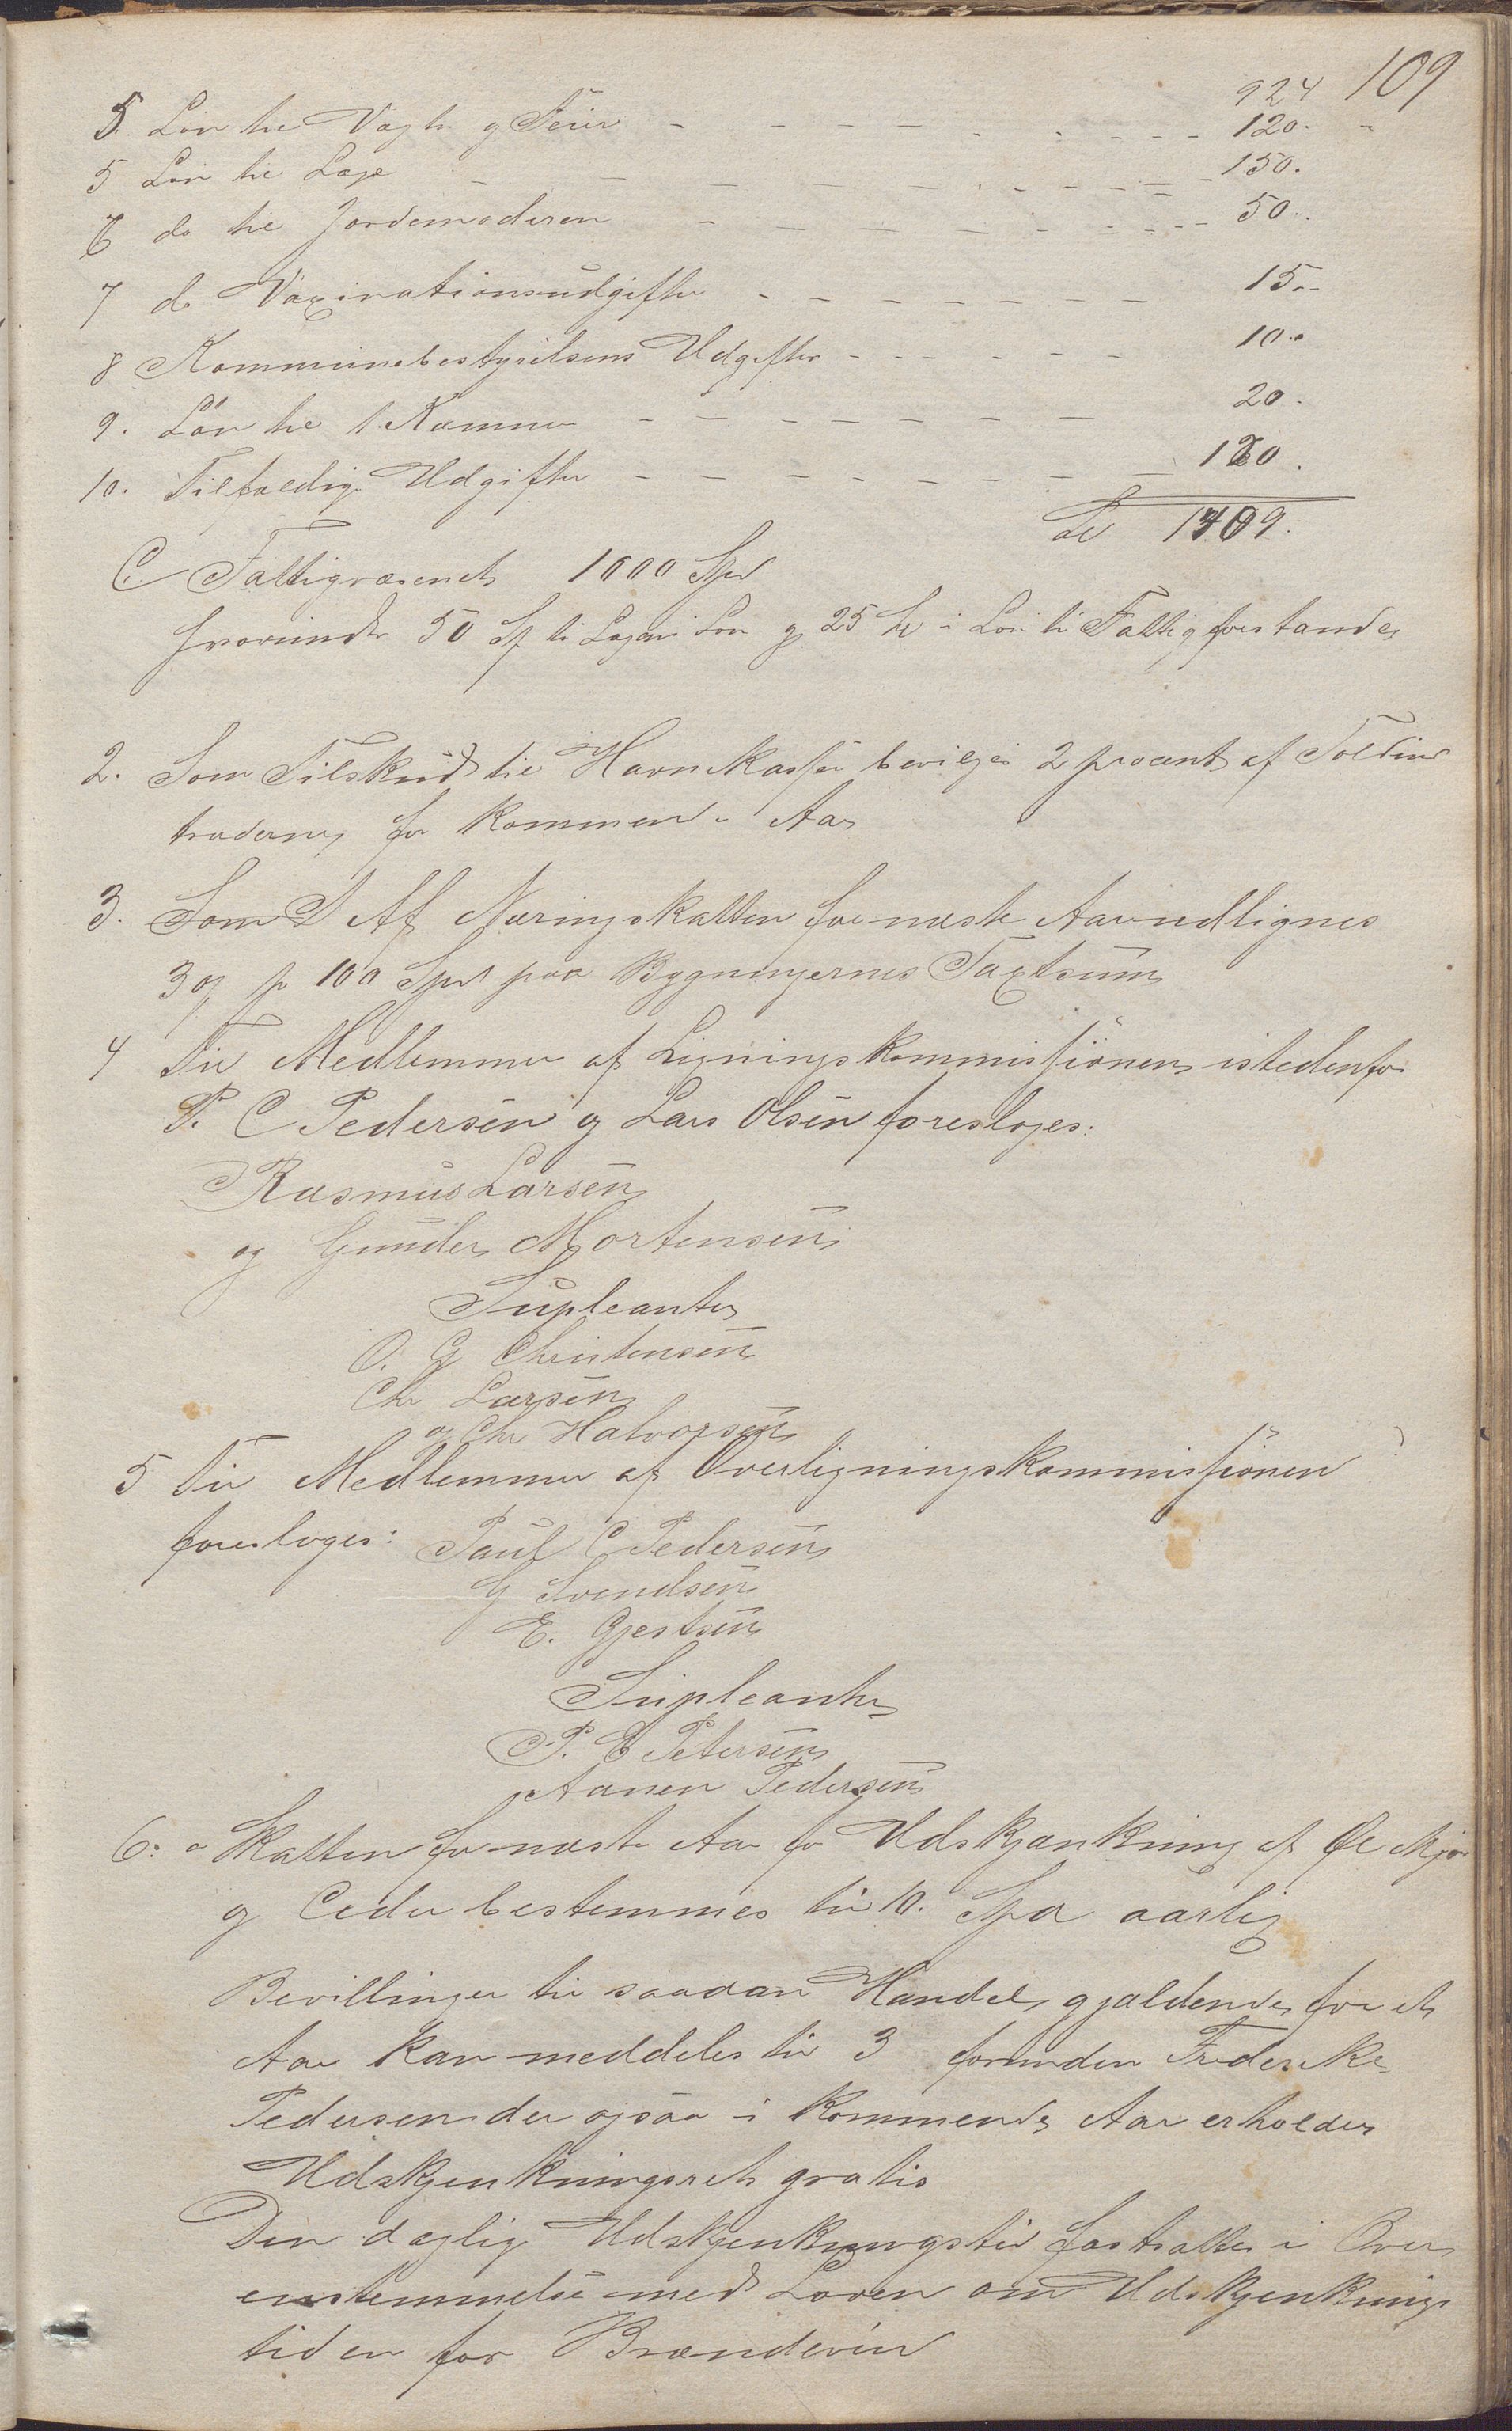 109
924
5. Løn til Vægter og Feier - - - - - - - - 120. "
5 Løn til Læge - - - - - - - - 150.
6 do til Jordemoderen - - - - - - - - 50..
7 do Vaxinationsudgifter - - - - - - - 15..
8 Kommunebestyrelsens Udgifter - - - - - - 10..
9. Løn til 1 Kæmner - - - - - - - 20.
10. Tilfældige Udgifter - - - - - - - - 120.
1409.
C. Fattigvæsenet 1000 Spd
hvorunder 50 Sp til Lægens Løn og 25 Sp i Løn til Fattigforstander
2. Som Tilskud til Havnekassen bevilges 2 procent af Toldind
traderne for kommende Aar
3. Som Af Næringskatten for næste Aar udlignes
3 pr 100 Spd paa Bygningernes Taxtsum
4 Til Medlemmer af Ligningskommissionen istedenfor
P. C Pedersen og Lars Olsen foresloges:
Rasmus Larsen
og Gunder Mortensen
Supleanter
O. G Christensen
Chr Larsen
og Chr Halvorsen
5 Til Medlemmer af Overligningskommissionen
foresloges: Paul C Pedersen
G Svendsen
E. Gjertsen
Supleanter
P. E Petersen
Aanen Pedersen
6: Skatten for næste Aar for Udskjænkning af Øl Mjød
og Ceder bestemmes til 10. Spd aarlig
Bevillinger til saadan Handel gjældende for et
Aar kan meddeles til 3 foruden Frederikke
Pedersen der ogsaa i kommende Aar erholder
Udskjenkningsret gratis
Den daglige Udskjenkningstid fastsattes i Over
enstemmelse med Loven om Udskjenknings
tiden for Brændeviin